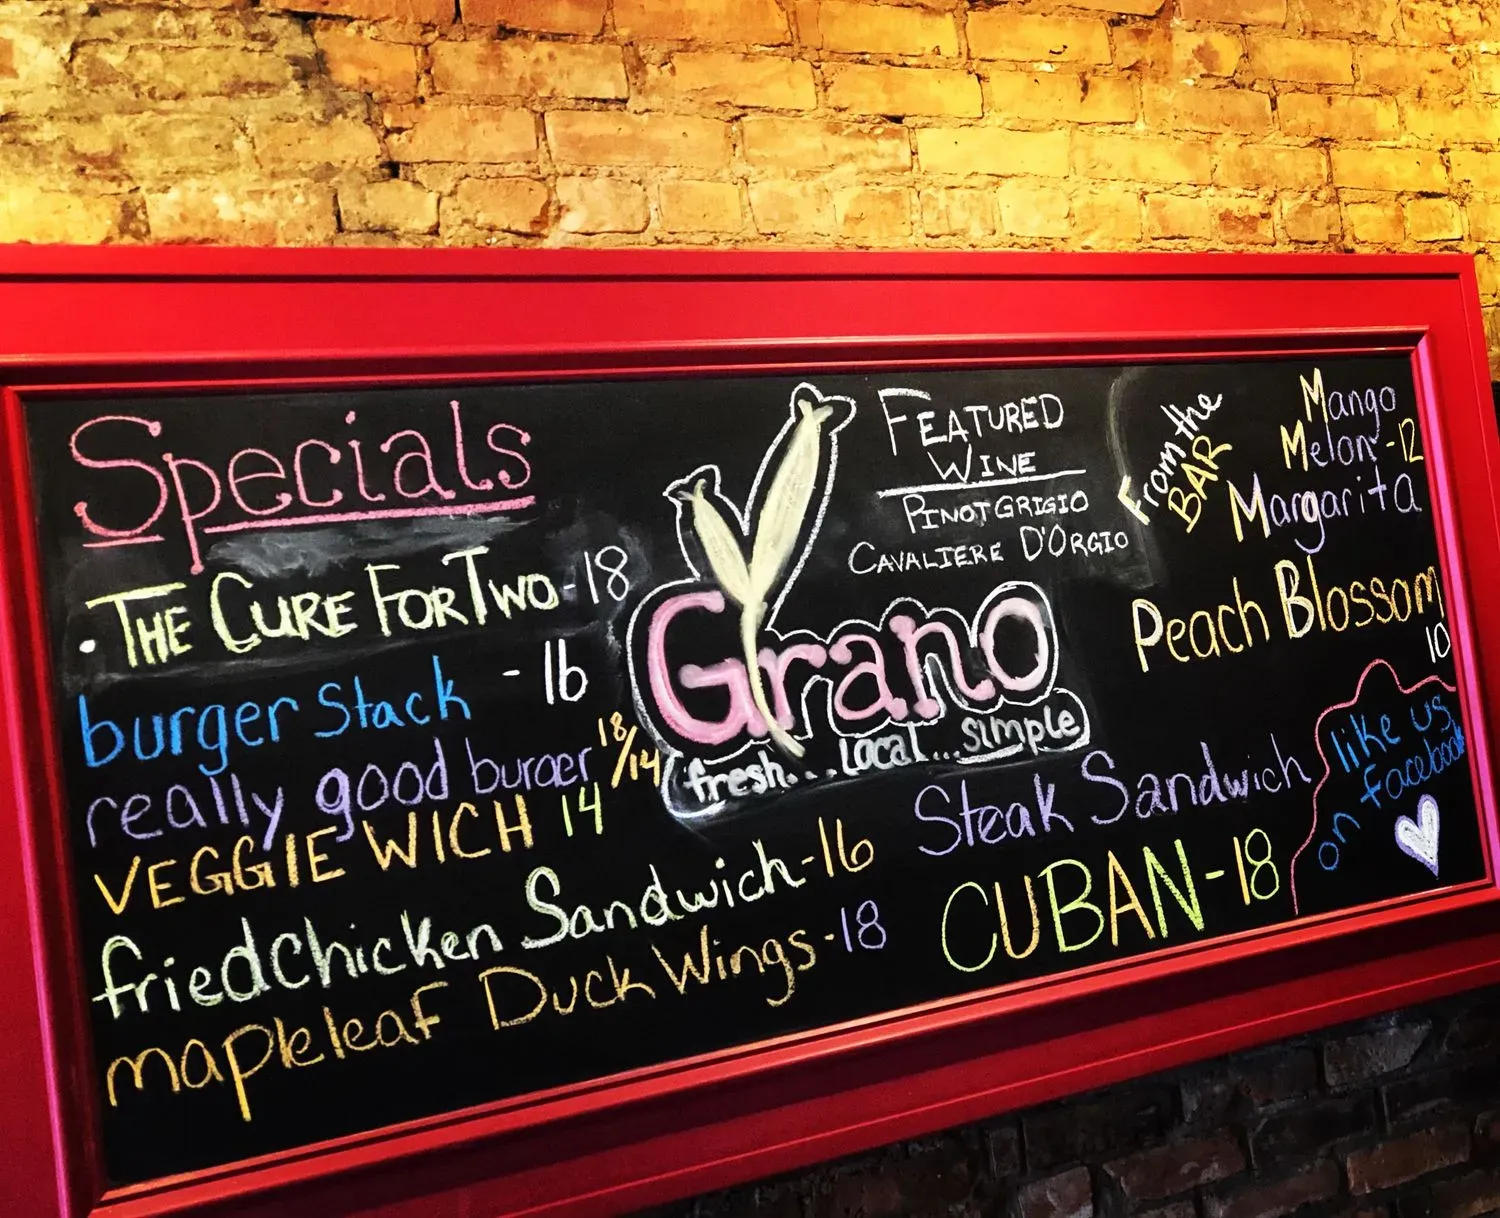 Specials
• THE CURE FOR TWO - 18
burger Stack - 16
really good burger 18/14
VEGGIE WICH 14
fried Chicken Sandwich - 16
mapleleaf Duck Wings - 18
Grano
fresh... local... simple
FEATURED
WINE
PINOT GRIGIO
CAVALIERE D'ORGIO
From the
BAR
Mango
Melon - 12
Margarita
Peach Blossom
10
Steak Sandwich
CUBAN - 18
like us
on facebook